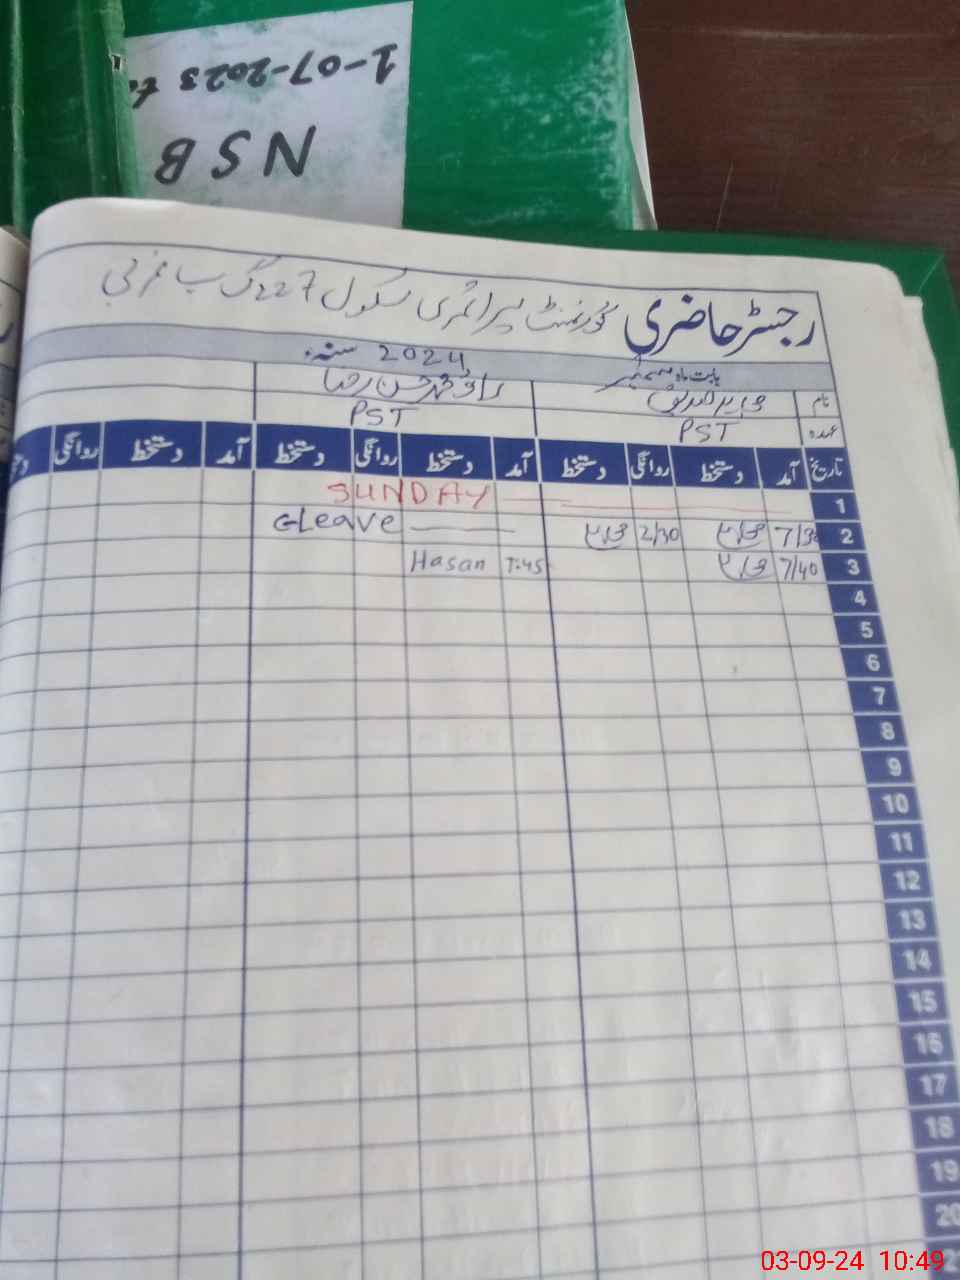 1-07-2023 to
NSB
رجسٹر حاضری گورنمنٹ پرائمری سکول 227 گ ب غربی
بابت ماہ ستمبر 2024 سنہ
نام راؤ محمد حسن رضا
عہدہ PST PST
تاریخ آمد دستخط روانگی دستخط آمد دستخط روانگی دستخط آمد دستخط روانگی
1 SUNDAY
2 7/30 2/30 CLeave
3 7/40 7:45 Hasan
4
5
6
7
8
9
10
11
12
13
14
15
16
17
18
19
20
03-09-24 10:49